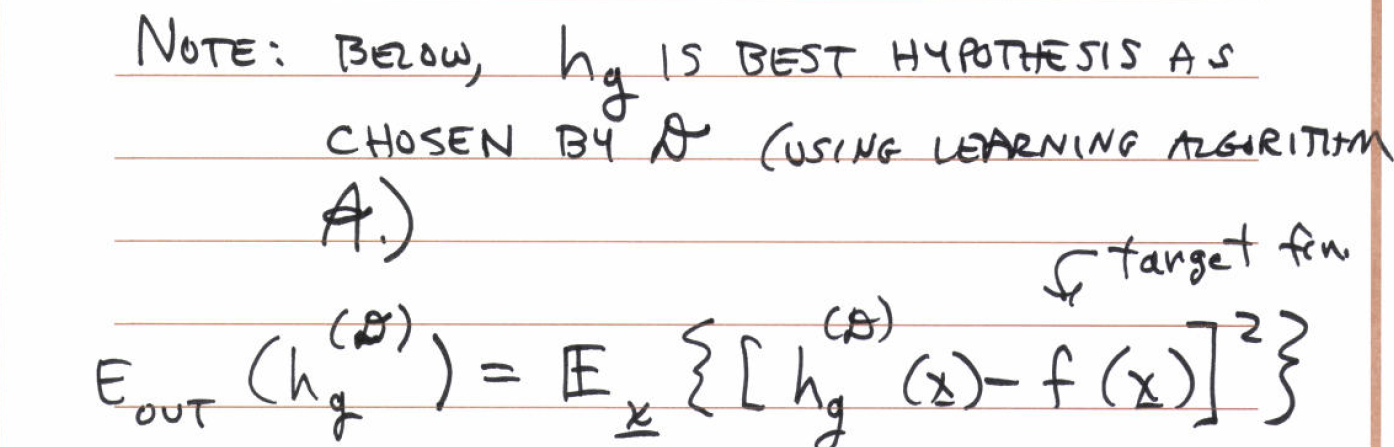 NOTE: BELOW, h_g IS BEST HYPOTHESIS AS
CHOSEN BY 𝒟 (USING LEARNING ALGORITHM
A.)
target fcn.
E_OUT (h_g^(𝒟)) = 𝔼_x {[h_g^(𝒟) (x) - f (x)]^2}